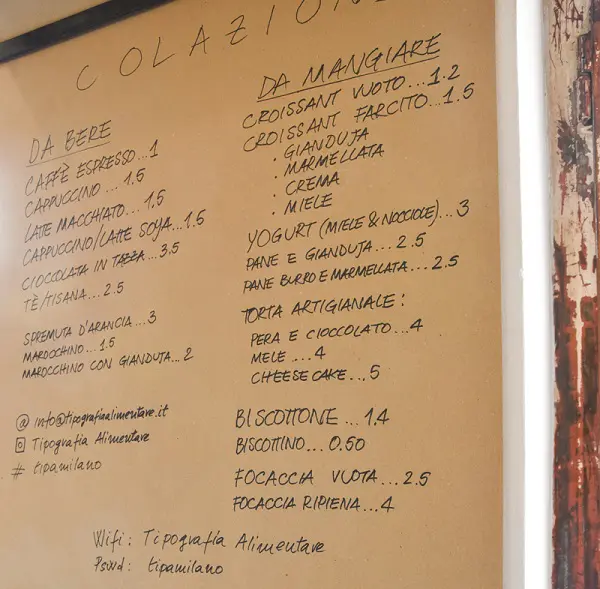 COLAZIONE
DA BERE
CAFFÈ ESPRESSO...1
CAPPUCCINO...1.5
LATTE MACCHIATO...1.5
CAPPUCCINO/LATTE SOYA...1.5
CIOCCOLATA IN TAZZA...3.5
TÈ/TISANA...2.5
SPREMUTA D'ARANCIA...3
MAROCCHINO...1.5
MAROCCHINO CON GIANDUJA...2
@ info@tipografiaalimentare.it
Tipografia Alimentare
# tipamilano
DA MANGIARE
CROISSANT VUOTO...1.2
CROISSANT FARCITO...1.5
. GIANDUJA
. MARMELLATA
. CREMA
. MIELE
YOGURT (MIELE & NOCCIOLE)...3
PANE E GIANDUJA...2.5
PANE BURRO E MARMELLATA...2.5
TORTA ARTIGIANALE:
PERA E CIOCCOLATO...4
MELE...4
CHEESE CAKE...5
BISCOTTONE...1.4
BISCOTTINO...0.50
FOCACCIA VUOTA...2.5
FOCACCIA RIPIENA...4
Wifi: Tipografia Alimentare
Pswd: tipamilano